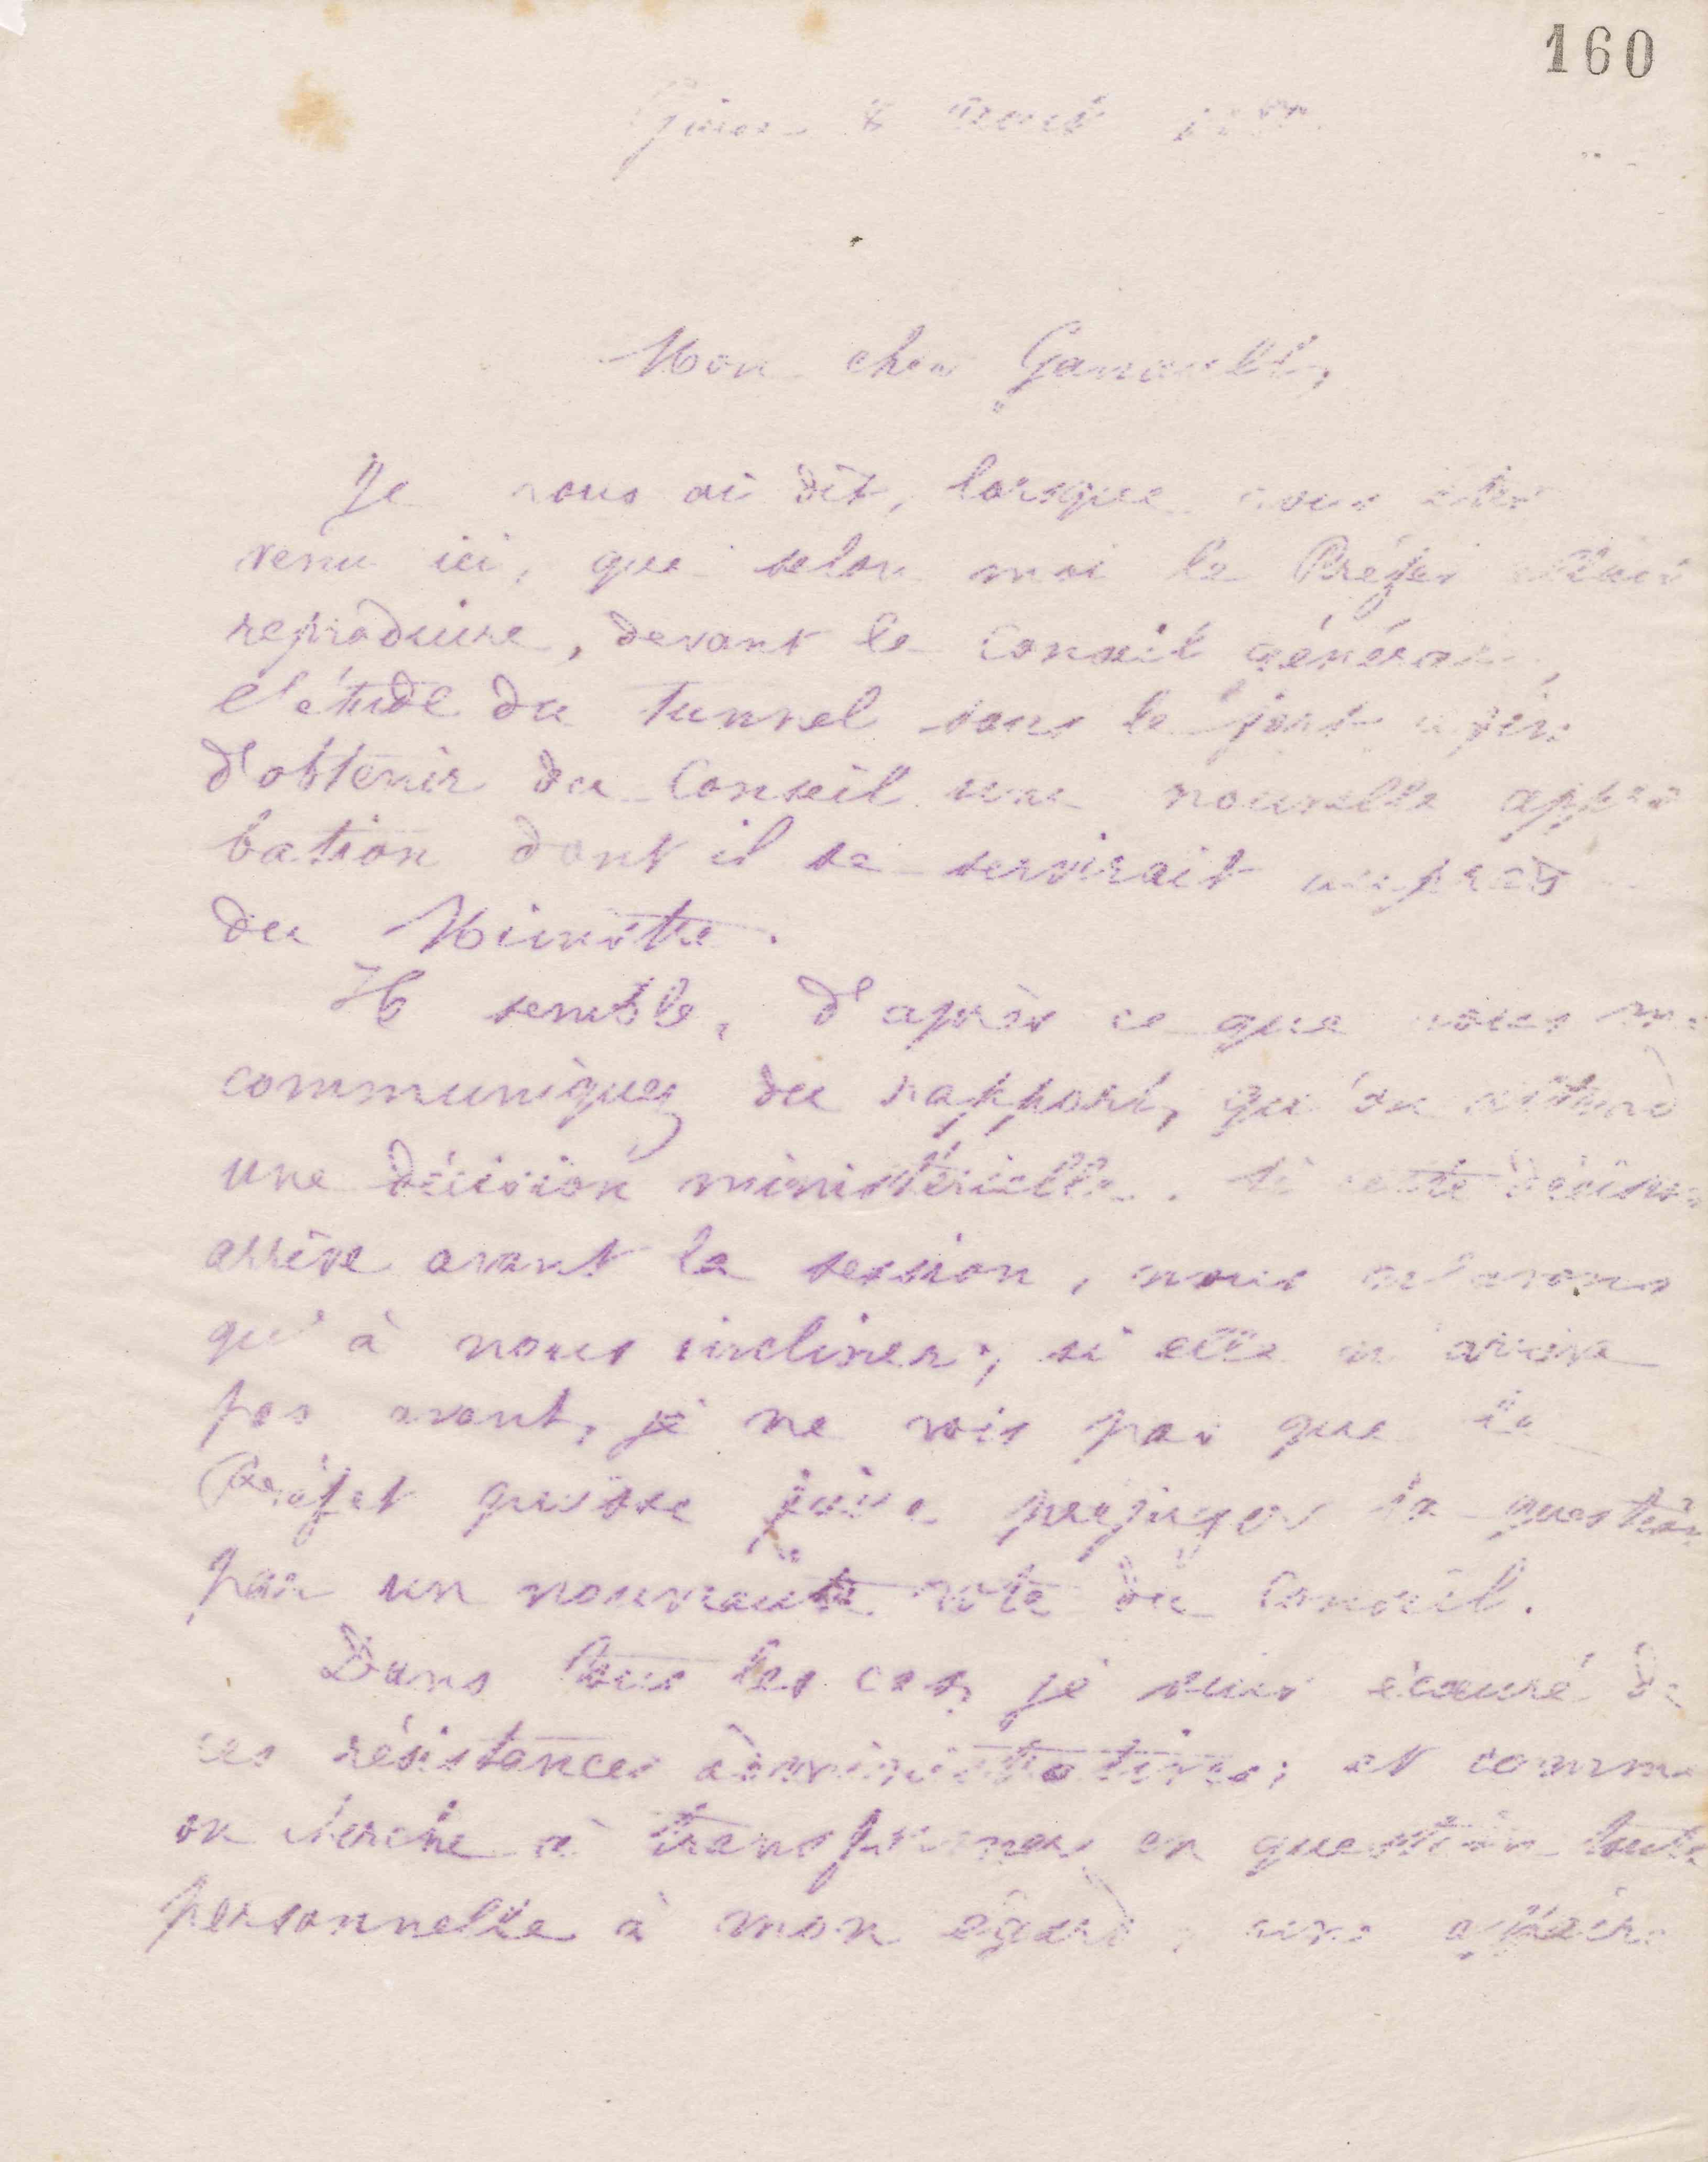 160
Guise 8 Août
Mon cher Ganault,
Je vous ai dit, lorsque vous êtes
venu ici, que selon moi le Préfet allait
reproduire, devant le Conseil général,
l'étude du tunnel sous le
d'obtenir du Conseil une nouvelle appro
bation dont il se servirait auprès
du Ministre.
Il semble, d'après ce que vous me
communiquez du rapport, qu'on attend
une décision ministérielle. Si cette décision
arrive avant la session, nous n'avons
qu'à nous incliner; si elle n'arrive
pas avant, je ne vois pas que le
Préfet puisse faire préjuger la question
par un nouveau vote du Conseil.
Dans tous les cas, je suis écœuré de
ces résistances administratives; et comme
on cherche à transformer en question toute
personnelle à mon égard, une affaire